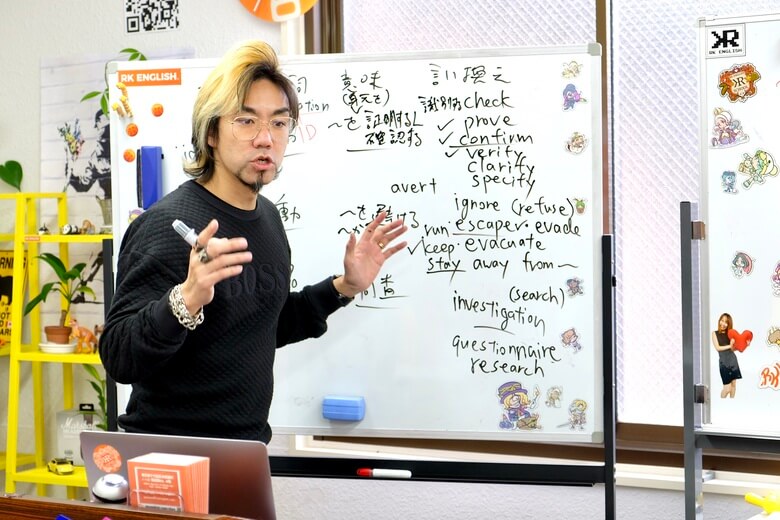 RK ENGLISH.
詞
意味
言い換え
(覚えて)
ption
ID
識別的 check
〜を証明する
✓ prove
確認する
✓ confirm
✓ verify
clarify
specify
avert
動
〜を避ける
ignore (refuse)
run・escape・evade
✓keep・evacuate
stay away from〜
BOSS
査
(search)
investigation
questionnaire
research
KR
RK ENGLISH